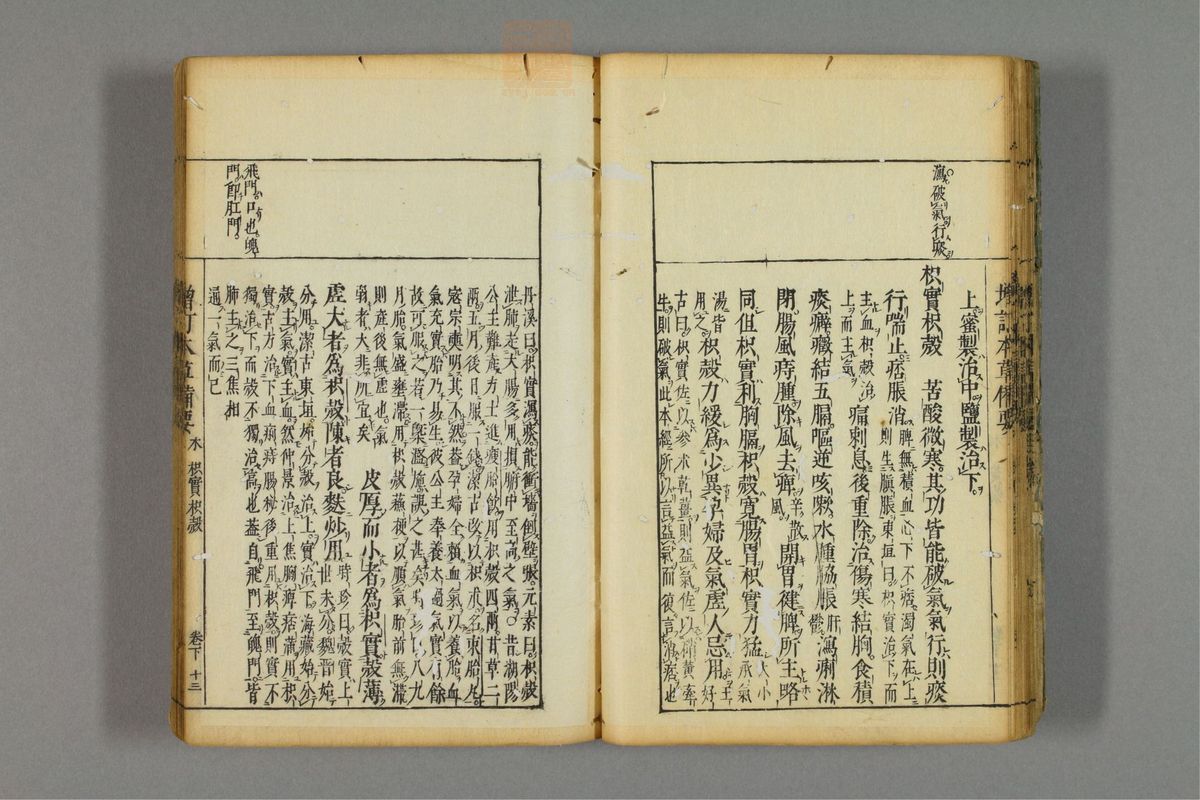 瀉破氣行痰
上蜜製治中鹽製治下
枳實枳殼 苦酸微寒其功皆能破氣氣行則痰
行喘止痞脹消脾無積血心下不痞濁氣在上
則生䐜脹東垣曰枳實治下而
主血枳殼治
上而主氣痛刺息後重除治傷寒結胸食積
痰癖癥結五膈嘔逆咳嗽水腫脇脹肝鬱瀉痢淋
閉腸風痔腫除風去痺辛散風開胃健脾所主略
同但枳實利胸膈枳殼寬腸胃枳實力猛大小承氣
湯皆
用之枳殼力緩爲少異孕婦及氣虛人忌用好
古曰枳實佐以參朮乾薑則益氣佐以硝黃牽
牛則破氣此本經所以言益氣而復言消痞也
增訂本草備要
飛門口也魄
門即肛門
丹溪曰枳實瀉痰能衝墻倒壁元素曰枳殼
泄肺走大腸多用損胸中至高之氣昔湖陽
公主難產方士進瘦胎飲用枳殼四兩甘草二
兩五月後日服一錢潔古改以枳朮名束胎丸
寇宗奭明其不然蓋孕婦全賴血氣以養胎血
氣充實胎乃易生彼公主奉養太過氣實有餘
故可服之若一槩濫用誤之甚矣時珍曰八九
月胎氣盛壅滯用枳殼蘇梗以順氣胎前無滯
則產後無虛也氣
弱者大非所宜矣 皮厚而小者爲枳實殼薄
虛大者爲枳殼陳者良麩炒用時珍曰殼實上
世未分魏晉始
分用潔古東垣始分殼治上實治下海藏始分
殼主氣實主血然仲景治上焦胸痺痞滿用枳
實古方治下血痢痔腸秘後重用枳殼則實不
獨治下而殼不獨治高也蓋自飛門至魄門皆
肺主之三焦相
通一氣而已
增訂本草備要 木 枳實枳殼 卷下 十三